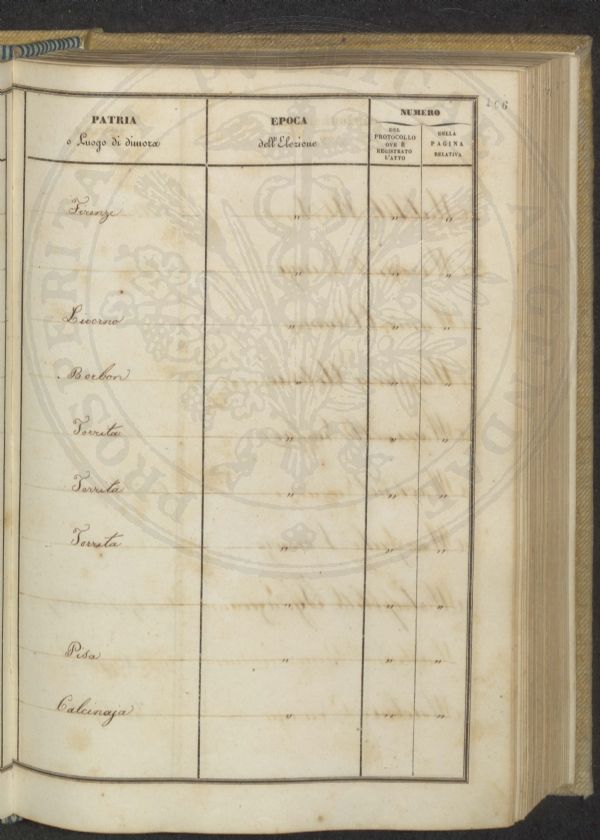 196
PATRIA
o Luogo di dimora
EPOCA
dell'Elezione
NUMERO
DEL
PROTOCOLLO
OVE È
REGISTRATO
L'ATTO
DELLA
PAGINA
RELATIVA
Firenze " " "
" " "
Livorno " " "
Borbon " " "
Torrita " " "
Torrita " " "
Torrita " " "
" "
Pisa " " "
Calcinaja " " "
PROSPERITATI PUBLICAE AUGENDAE